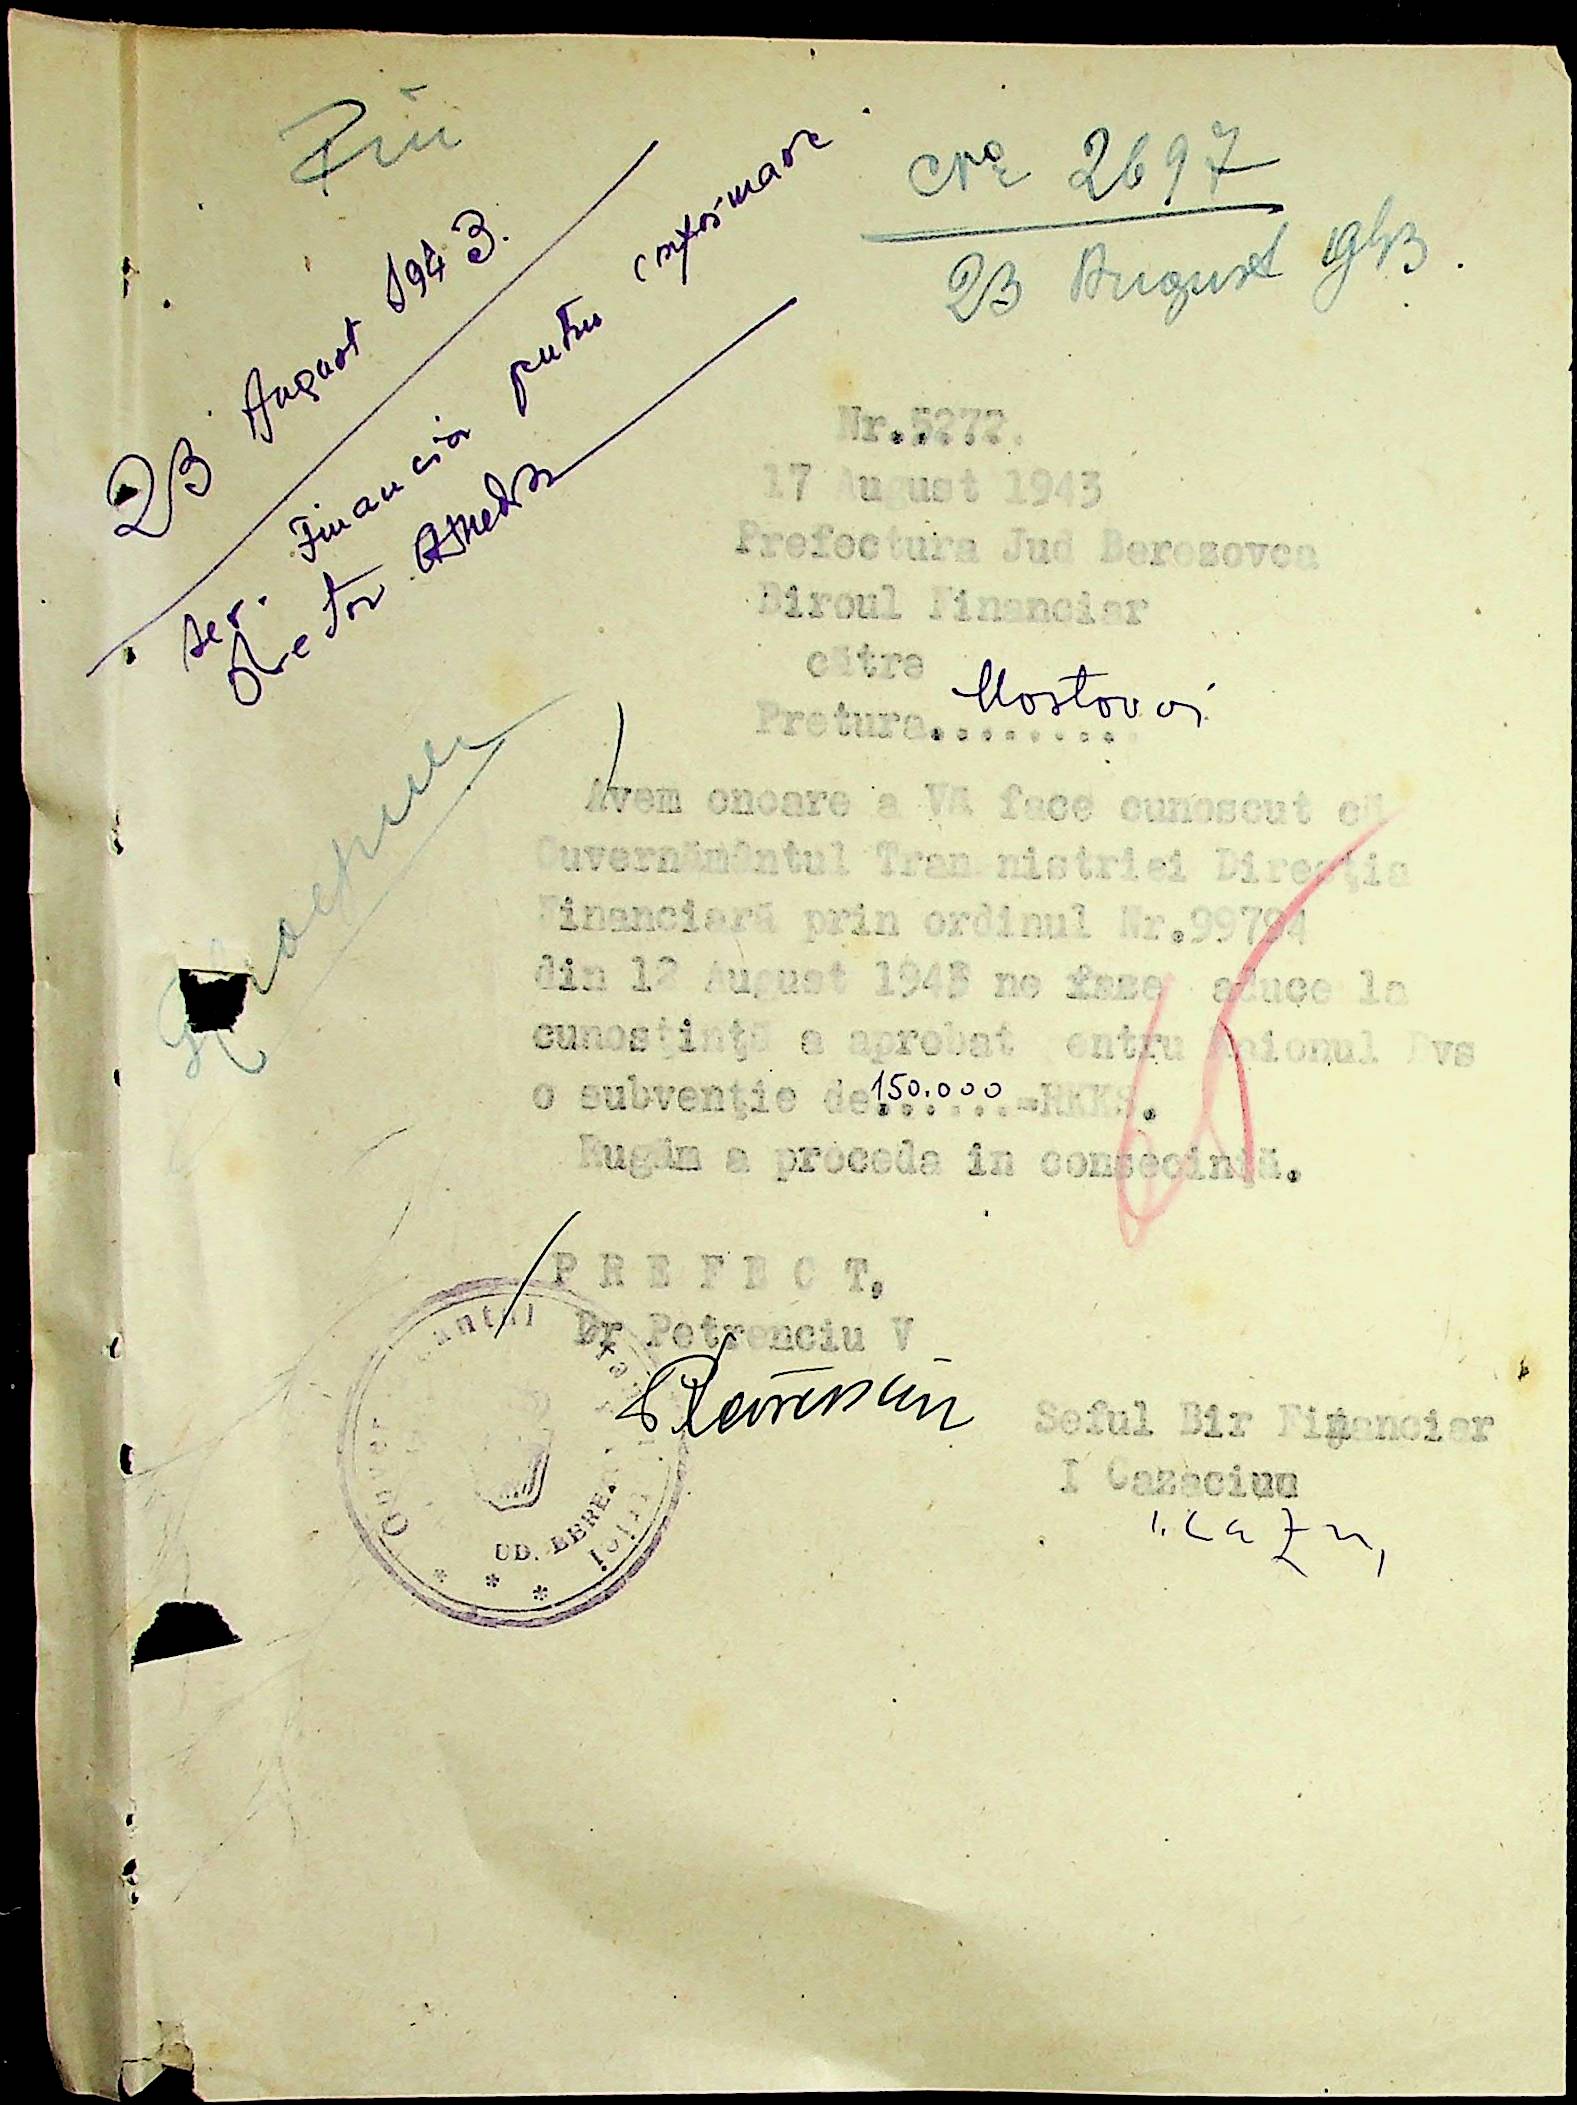 Nº 2697
23 August 943.
23 August 1943.
Ser. Financiar pentru conformare
Nr.5272.
17 August 1943
Prefectura Jud Berezovca
Biroul Financiar
către
Pretura.......... Mostovoi
Avem onoare a Vă face cunoscut că
Guvernământul Transnistriei Direcţia
Financiară prin ordinul Nr.99794
din 12 August 1943 ne face aduce la
cunoştinţă a aprobat pentru Raionul Dvs
o subvenţie de 150.000 -RKKS.
Rugăm a proceda in consecinţă.
P R E F E C T,
Dr Petrenciu V
Seful Bir Financiar
I Cazaciuu
UD. BERE